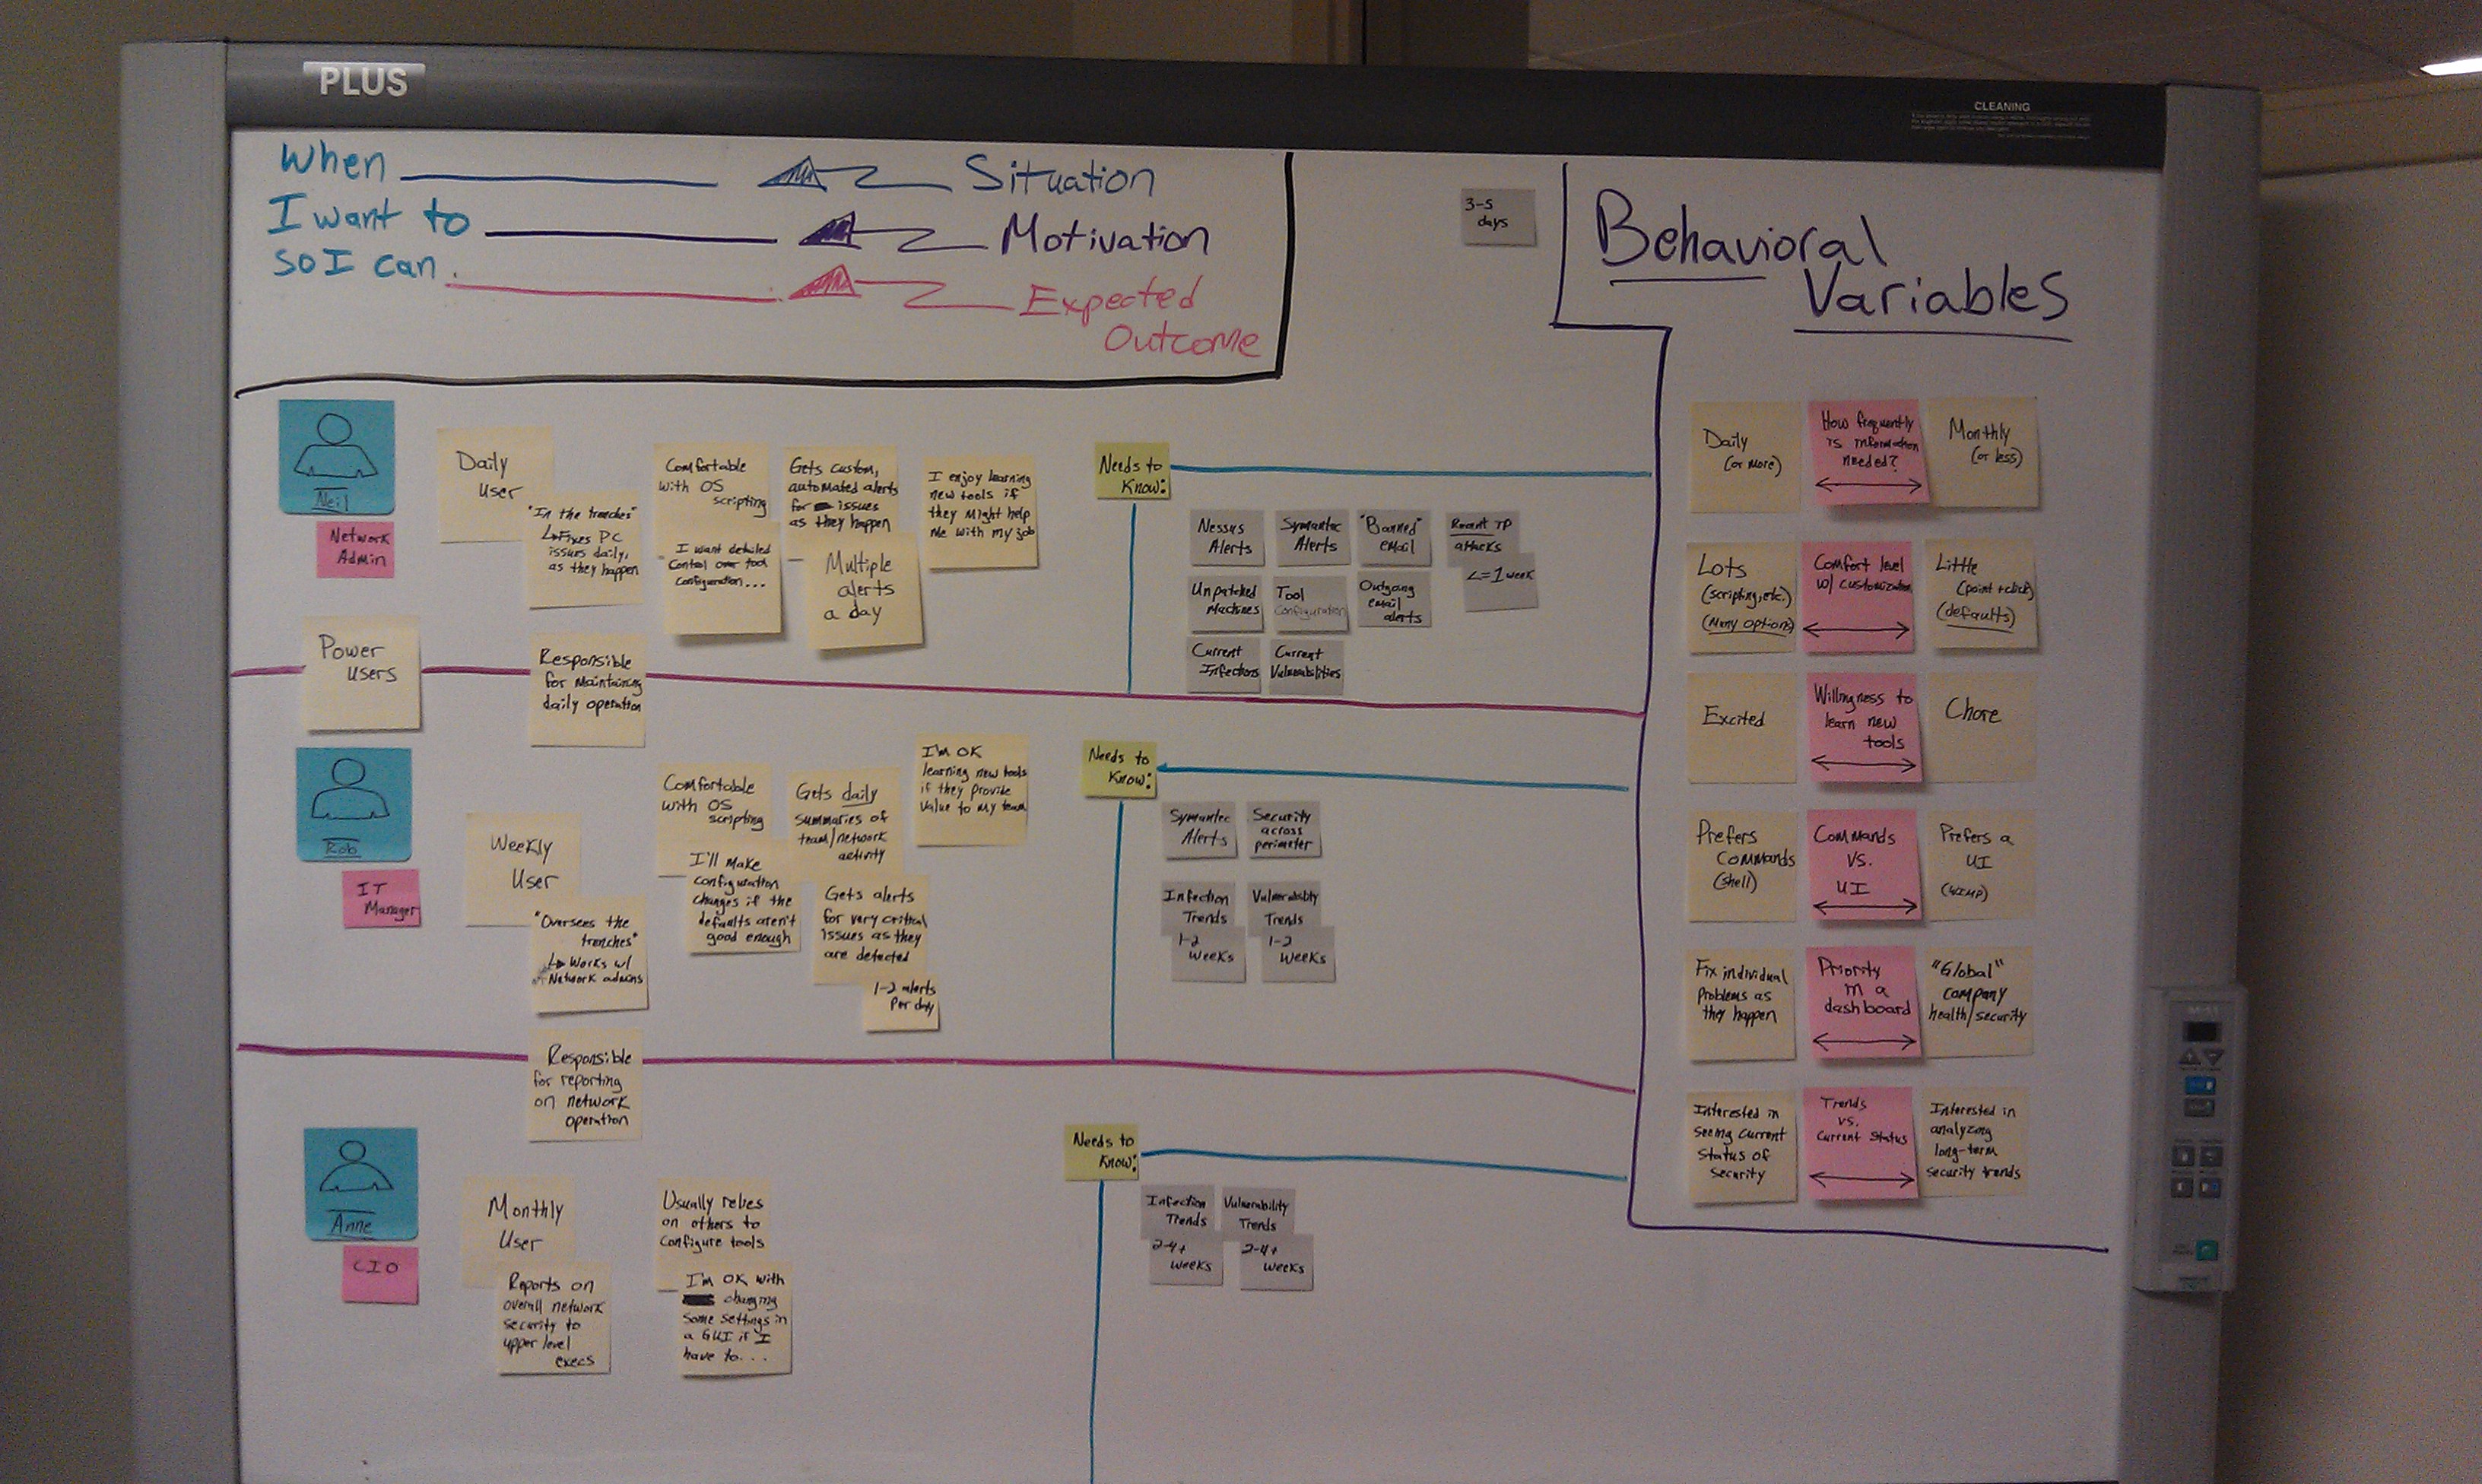 PLUS
CLEANING
When
Situation
I want to
Motivation
so I can
Expected
Outcome
3-5
days
Behavioral
Variables
Neil
Network
Admin
Daily
User
"In the trenches"
Fixes PC
issues daily,
as they happen
Comfortable
with OS
scripting
I want detailed
Control over tool
Configuration...
Gets custom,
automated alerts
for issues
as they happen
Multiple
alerts
a day
I enjoy learning
new tools if
they might help
me with my job
Needs to
Know:
Nessus
Alerts
Symantec
Alerts
"Banned"
email
Recent IP
attacks
<=1 week
Unpatched
Machines
Tool
Configuration
Outgoing
email
alerts
Current
Infections
Current
Vulnerabilities
Power
Users
Responsible
for maintaining
daily operation
Rob
IT
Manager
Weekly
User
"Oversees the
trenches"
Works w/
Network admins
Comfortable
with OS
scripting
I'll make
configuration
changes if the
defaults aren't
good enough
Gets daily
summaries of
team/network
activity
Gets alerts
for very critical
issues as they
are detected
1-2 alerts
Per day
I'm OK
learning new tools
if they provide
value to my team
Needs to
Know:
Symantec
Alerts
Security
across
perimeter
Infection
Trends
1-2
weeks
Vulnerability
Trends
1-2
weeks
Responsible
for reporting
on network
operation
Anne
CIO
Monthly
User
Reports on
overall network
security to
upper level
execs
Usually relies
on others to
Configure tools
I'm OK with
changing
some settings in
a GUI if I
have to...
Needs to
Know:
Infection
Trends
2-4+
weeks
Vulnerability
Trends
2-4+
weeks
Daily
(or more)
How frequently
is information
needed?
Monthly
(or less)
Lots
(scripting, etc.)
(Many options)
Comfort level
w/ customization
Little
(point + click)
(defaults)
Excited
Willingness to
learn new
tools
Chore
Prefers
Commands
(shell)
Commands
vs.
UI
Prefers a
UI
(WIMP)
Fix individual
Problems as
they happen
Priority
in a
dashboard
"Global"
company
health/security
Interested in
seeing current
status of
security
Trends
vs.
Current Status
Interested in
analyzing
long-term
security trends